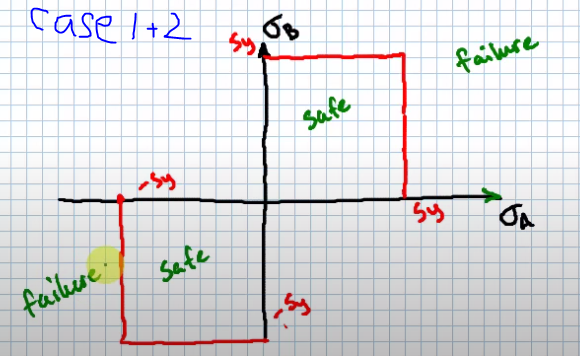 case 1+2
σB
Sy
failure
safe
-Sy
Sy
σA
safe
failure
-Sy